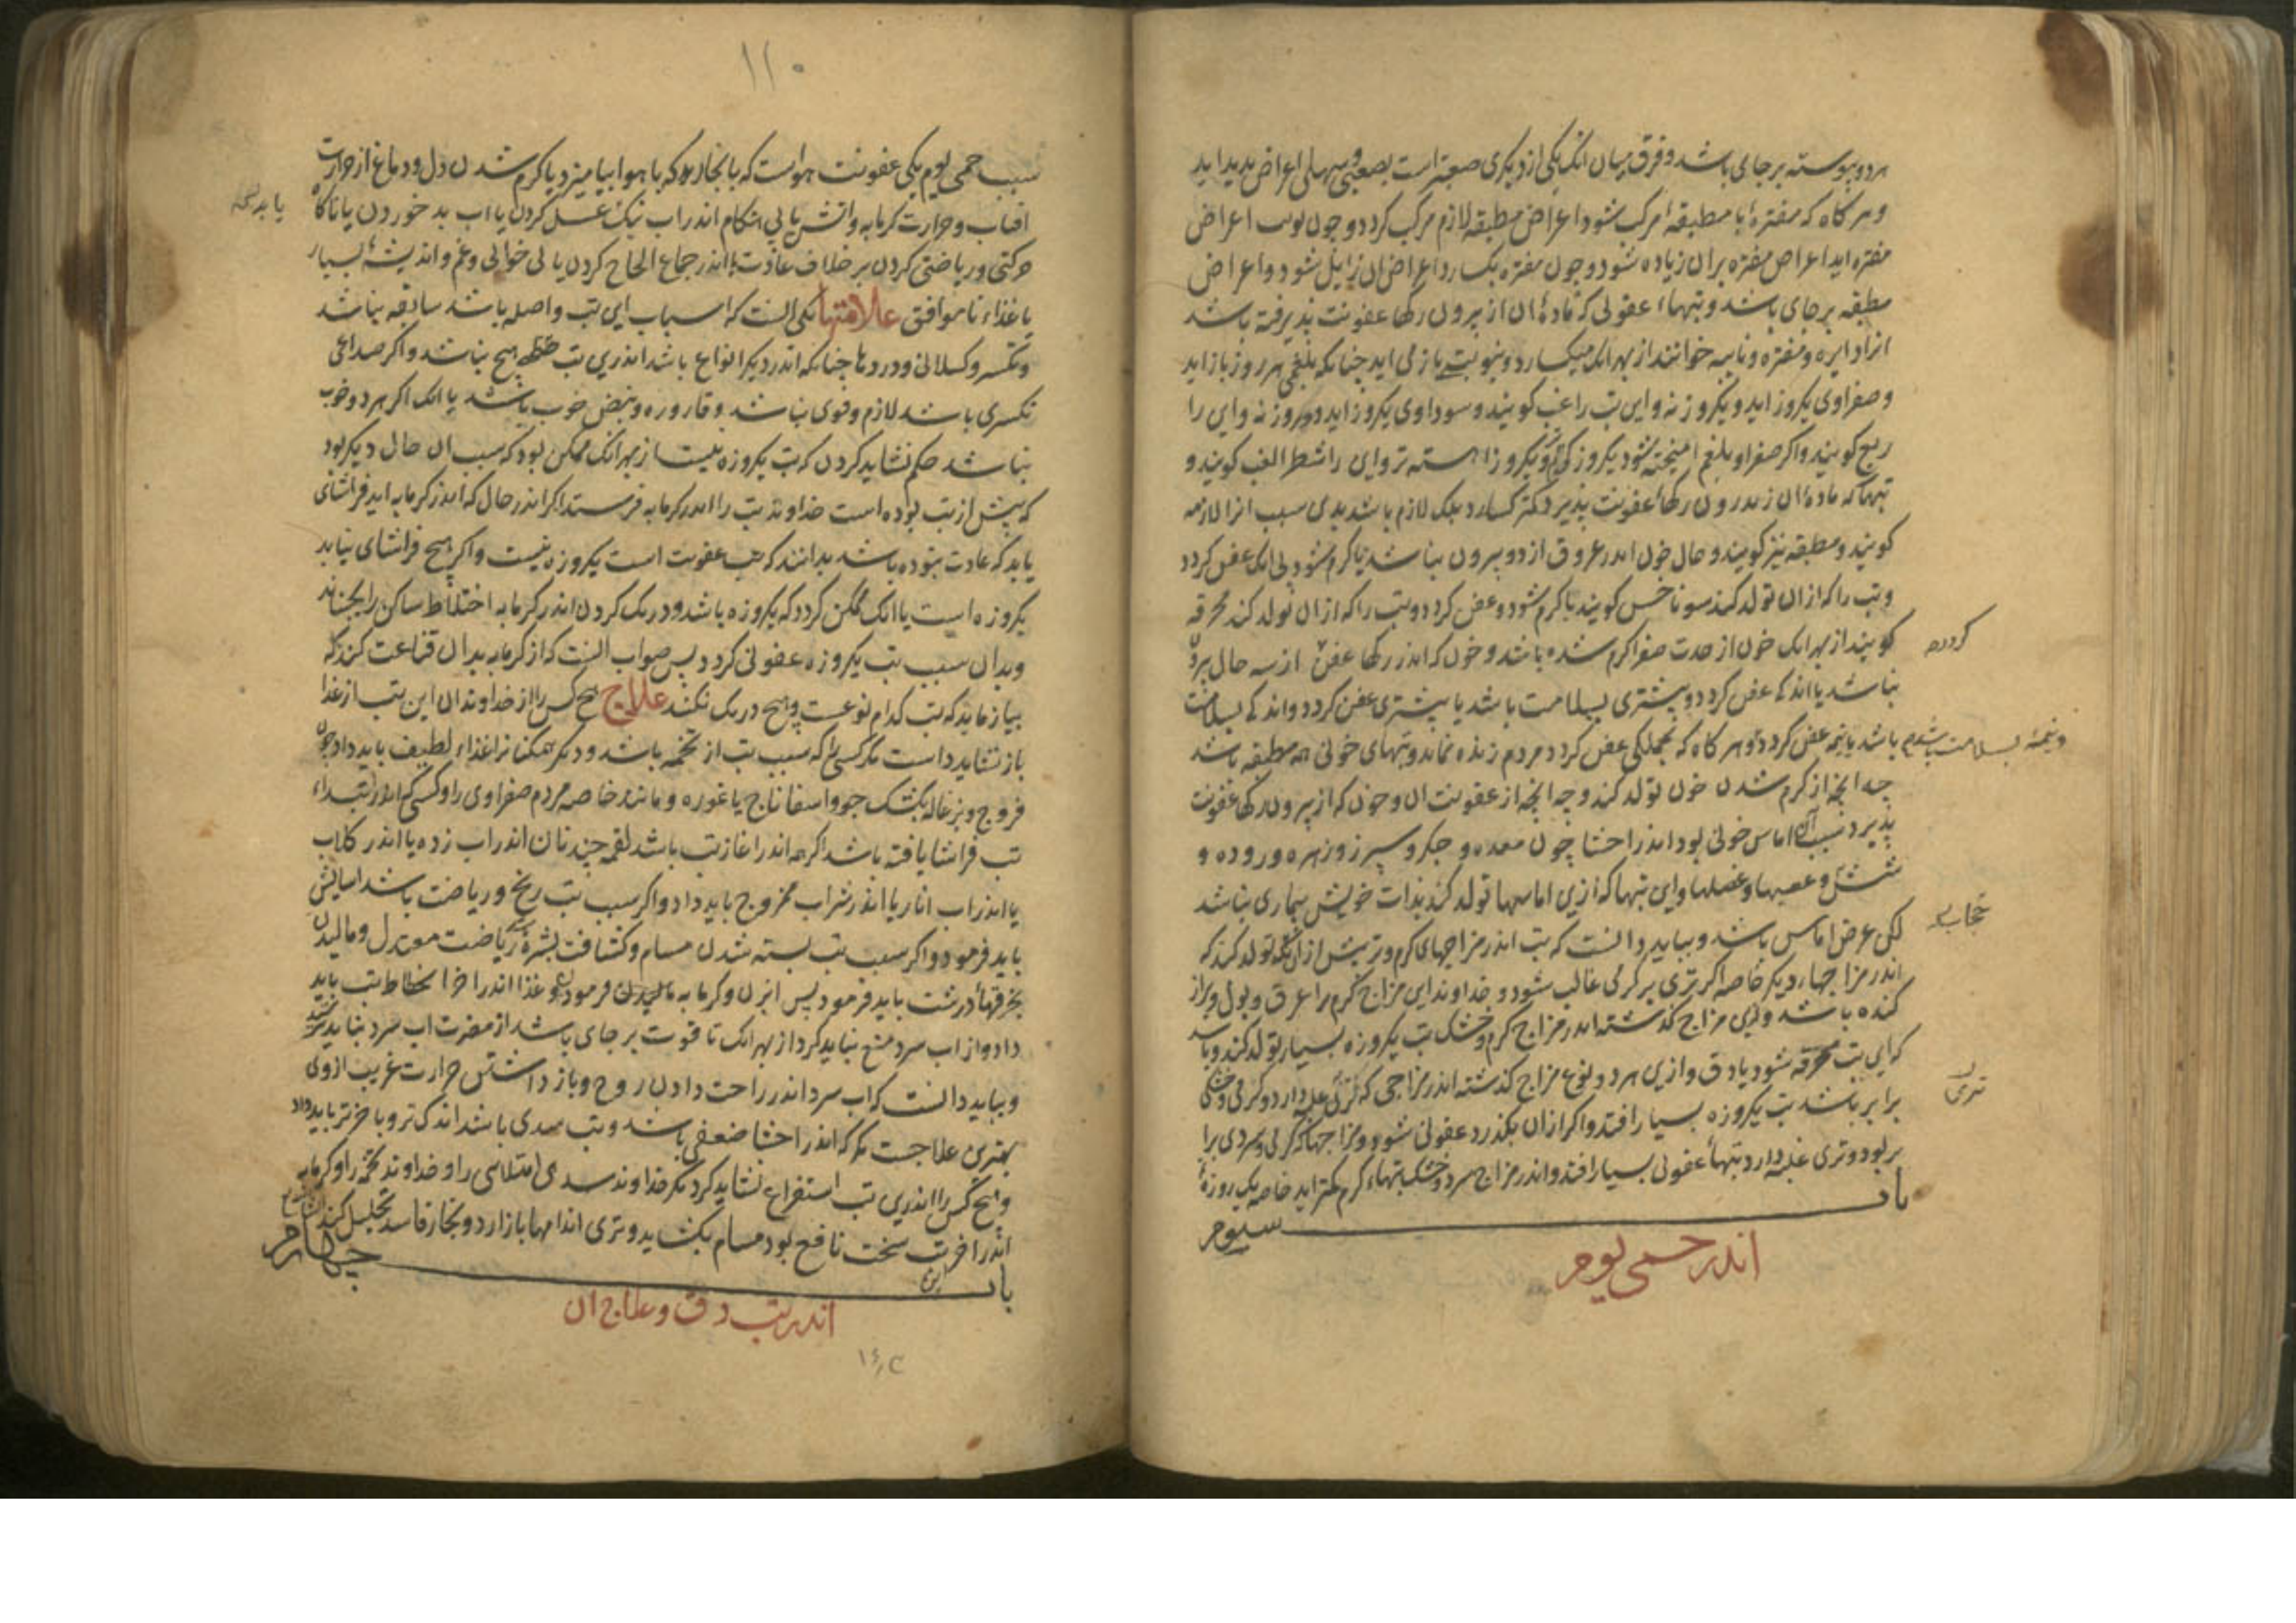 هر دو پیوسته بر جای باشد و فرق میان انک یکی از دیکری صعبتر است بصعبی و سهلی اعراض بدید اید
و هر کاه که مفتره با مطبقه مرکب شود اعراض مطبقه لازم مرکب کردد و چون نوبت اعراض
مفتره اید اعراض مفتره بران زیاده شود و چون مفتره بکسارد اعراض ان زایل شود و اعراض
مطبقه بر جای باشد و تبهاء عفونی که ماده ان از بیرون رکها عفونت پذیرفته باشد
انرا دایره و مفتره و نایبه خوانند از بهر انک میکسارد و بنوبت باز می اید چنانکه بلغمی هر روز باز اید
و صفراوی یکروز اید و یکروز نه و این تب را غب کویند و سوداوی یکروز اید و دو روز نه و این را
ربع کویند و اکر صفرا و بلغم امیخته شود یکروز کرمتر و یکروز اهسته تر و این را شطر الغب کویند و
تبها که ماده ان اندرون رکها عفونت پذیرد نکسارد بلک لازم باشد بدین سبب انرا لازمه
کویند و مطبقه نیز کویند و حال خون اندر عروق از دو بیرون نباشد یا کرم شود بی انک عفن کردد
و تب را که ازان تولد کند سوناخس کویند یا کرم شود و عفن کردد و تب را که ازان تولد کند محرقه
کویند از بهر انک خون از حدت صفرا کرم شده باشد و خون که اندر رکها عفن از سه حال بیرون
کردد
نباشد یا اندکی عفن کردد و بیشتری بسلامت باشد یا بیشتری عفن کردد و اندکی بسلامت
باشد یا نیمه عفن کردد و هر کاه که بجملکی عفن کردد مردم زنده نماند و تبهای خونی همه مطبقه باشد
و نیمه بسلامت باشد
چه انچه از کرم شدن خون تولد کند و چه انچه از عفونت ان و خون که از بیرون رکها عفونت
پذیرد سبب ان اماس خونی بود اندر احشا چون معده و جکر و سپرز و زهره و روده و
شش و عصبها و عضلها و این تبها که ازین اماسها تولد کند بذات خویش بیماری نباشد
لکن عرض اماس باشد و بباید دانست که تب اندر مزاجهای کرم و تر بیش ازان تولد کند که
اندر مزاجهاء دیکر خاصه اکر تری بر کرمی غالب شود و خداوند این مزاج کرم را عرق و بول و براز
کنده باشد و ازین مزاج کذشته اندر مزاج کرم و خشک تب یکروزه بسیار تولد کند و باشد
که این تب محرقه شود یا دق و ازین هر دو نوع مزاج کذشته اندر مزاجی که تری غلبه دارد و کرمی و خشکی
تری
برابر باشد تب یکروزه بسیار افتد و اکر ازان بکذرد عفونی شود و مزاجها که کرمی و سردی برا
بر بود و تری غلبه دارد تبهاء عفونی بسیار افتد و اندر مزاج سرد و خشک تبهاء کرم کمتر اید خاصه یک روزه
باب سیوم
اندر حمی یوم
۱۱۰
سبب حمی یوم یکی عفونت هواست که با بخار بد که با هوا بیامیزد یا کرم شدن دل و دماغ از حرارت
افتاب و حرارت کرمابه و اتش یا بی هنکام اندر اب نیک غسل کردن یا اب بد خوردن یا ناکاه
حرکتی و ریاضتی کردن بر خلاف عادت یا اندر جماع الحاح کردن یا بی خوابی و غم و اندیشه بسیار
یا غذاء ناموافق علامتها یکی انست که اسباب این تب واصله باشد سابقه نباشد
و تکسر و کسلانی و دردها چنانکه اندر دیکر انواع باشد اندرین تب هیچ نباشد و اکر صداعی
تکسری باشد لازم و قوی نباشد و قاروره و نبض خوب باشد یا انک اکر هر دو خوب
نباشد حکم نشاید کردن که تب یکروزه نیست از بهر انک ممکن بود که سبب ان حال دیکر بود
که پیش از تب بوده است خداوند تب را اندر کرمابه فرستد اکر اندر حال که اندر کرمابه اید فراشای
یابد که عادت نبوده باشد بدانند که تب عفونت است یکروزه نیست و اکر هیچ فراشای نیابد
یکروزه است یا انک ممکن کردد که یکروزه باشد و درنک کردن اندر کرمابه اختلاط ساکن را بجنباند
و بدان سبب تب یکروزه عفونی کردد پس صواب انست که از کرمابه بدان قناعت کند که
بیازماید که تب کدام نوعست و هیچ درنک نکند علاج هیچ کس را از خداوندان این تب از غذا
باز نشاید داشت مکر کسی که سبب تب از تخمه باشد و دیکر همکنانرا غذاء لطیف باید داد چون
فروج و بزغاله بکشک جو و اسفاناج یا غوره و مانند خاصه مردم صفراوی را و کسی که اندر ابتداء
تب فراشا یافته باشد اکر چه اندر اغاز تب باشد لقمه چند نان اندر اب زده یا اندر کلاب
یا اندر اب انار یا اندر شراب ممزوج باید داد و اکر سبب تب رنج و ریاضت باشد اسایش
باید فرمود و اکر سبب تب بسته شدن مسام و کثافت بشره ریاضت معتدل و مالیدن
بخرقهاء درشت باید فرمود پس ابزن و کرمابه فرمودن و غذا اندر اخر انحطاط تب باید
داد و از اب سرد منع نباید کرد از بهر انک تا قوت بر جای باشد از مضرت اب سرد نباید ترسید
و بباید دانست که اب سرد اندر راحت دادن روح و باز داشتن حرارت غریب ازوی
بهترین علاجست مکر که اندر احشا ضعفی باشد و تب سدی باشد اندکی تر و باخرتر باید داد
و هیچ کس را اندرین تب استفراغ نشاید کرد مکر خداوند سدی امتلائی را و خداوند تخمه را و کرمابه
اندر اخر تب سخت نافع بود مسام بکشاید و تری اندامها باز ارد و بخار فاسد تحلیل کند
باب چهارم
اندر تب دق و علاج ان